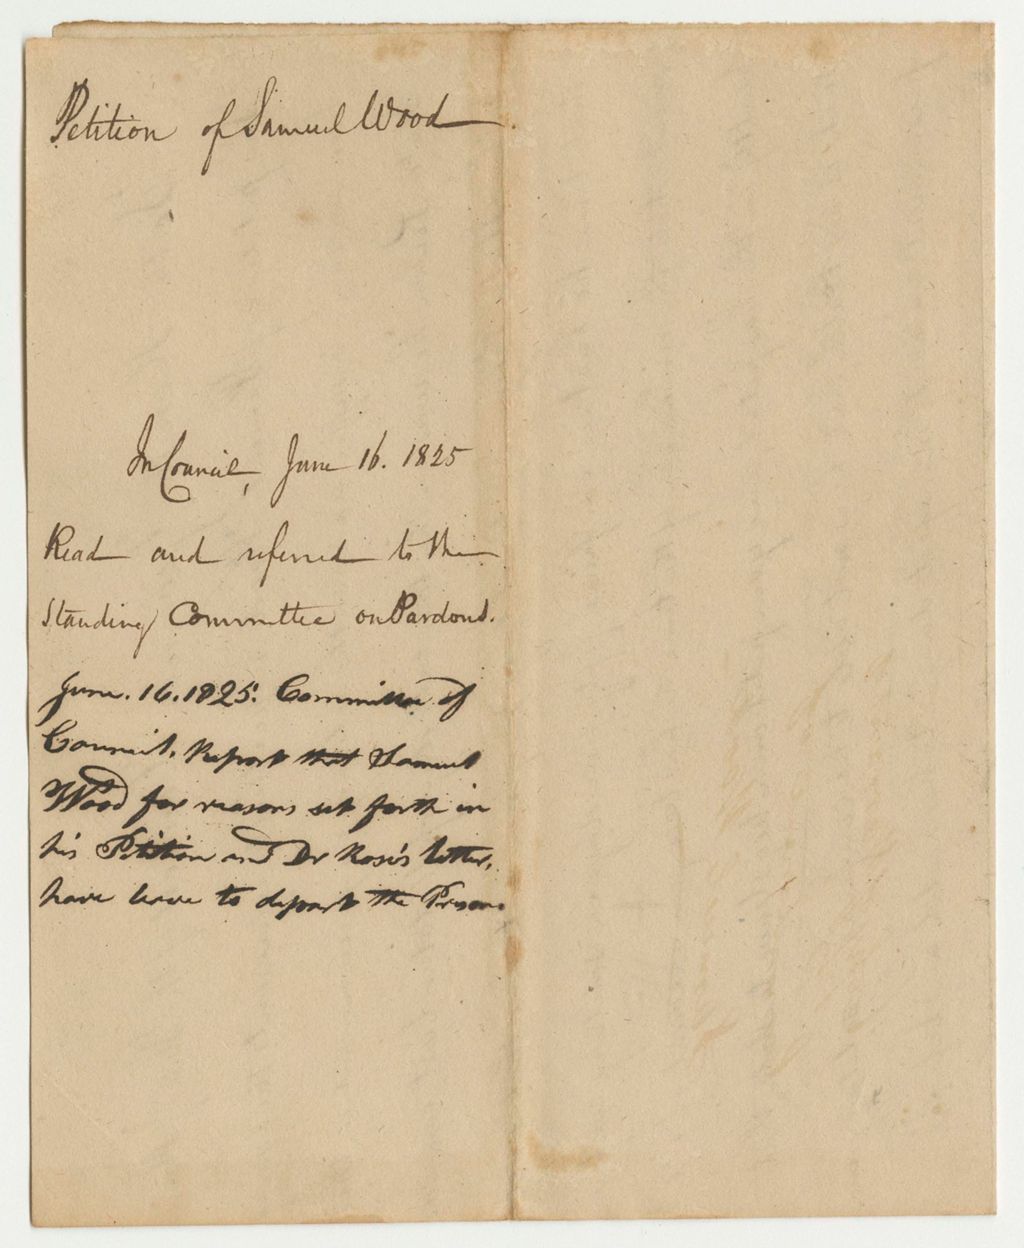 Petition of Samuel Wood
In Council, June 16. 1825
Read and referred to the
Standing Committee on Pardons.
June. 16. 1825. Committee of
Council. Report that Samuel
Wood for reasons set forth in
his Petition and Dr Rose's letter,
have leave to depart the Prison.